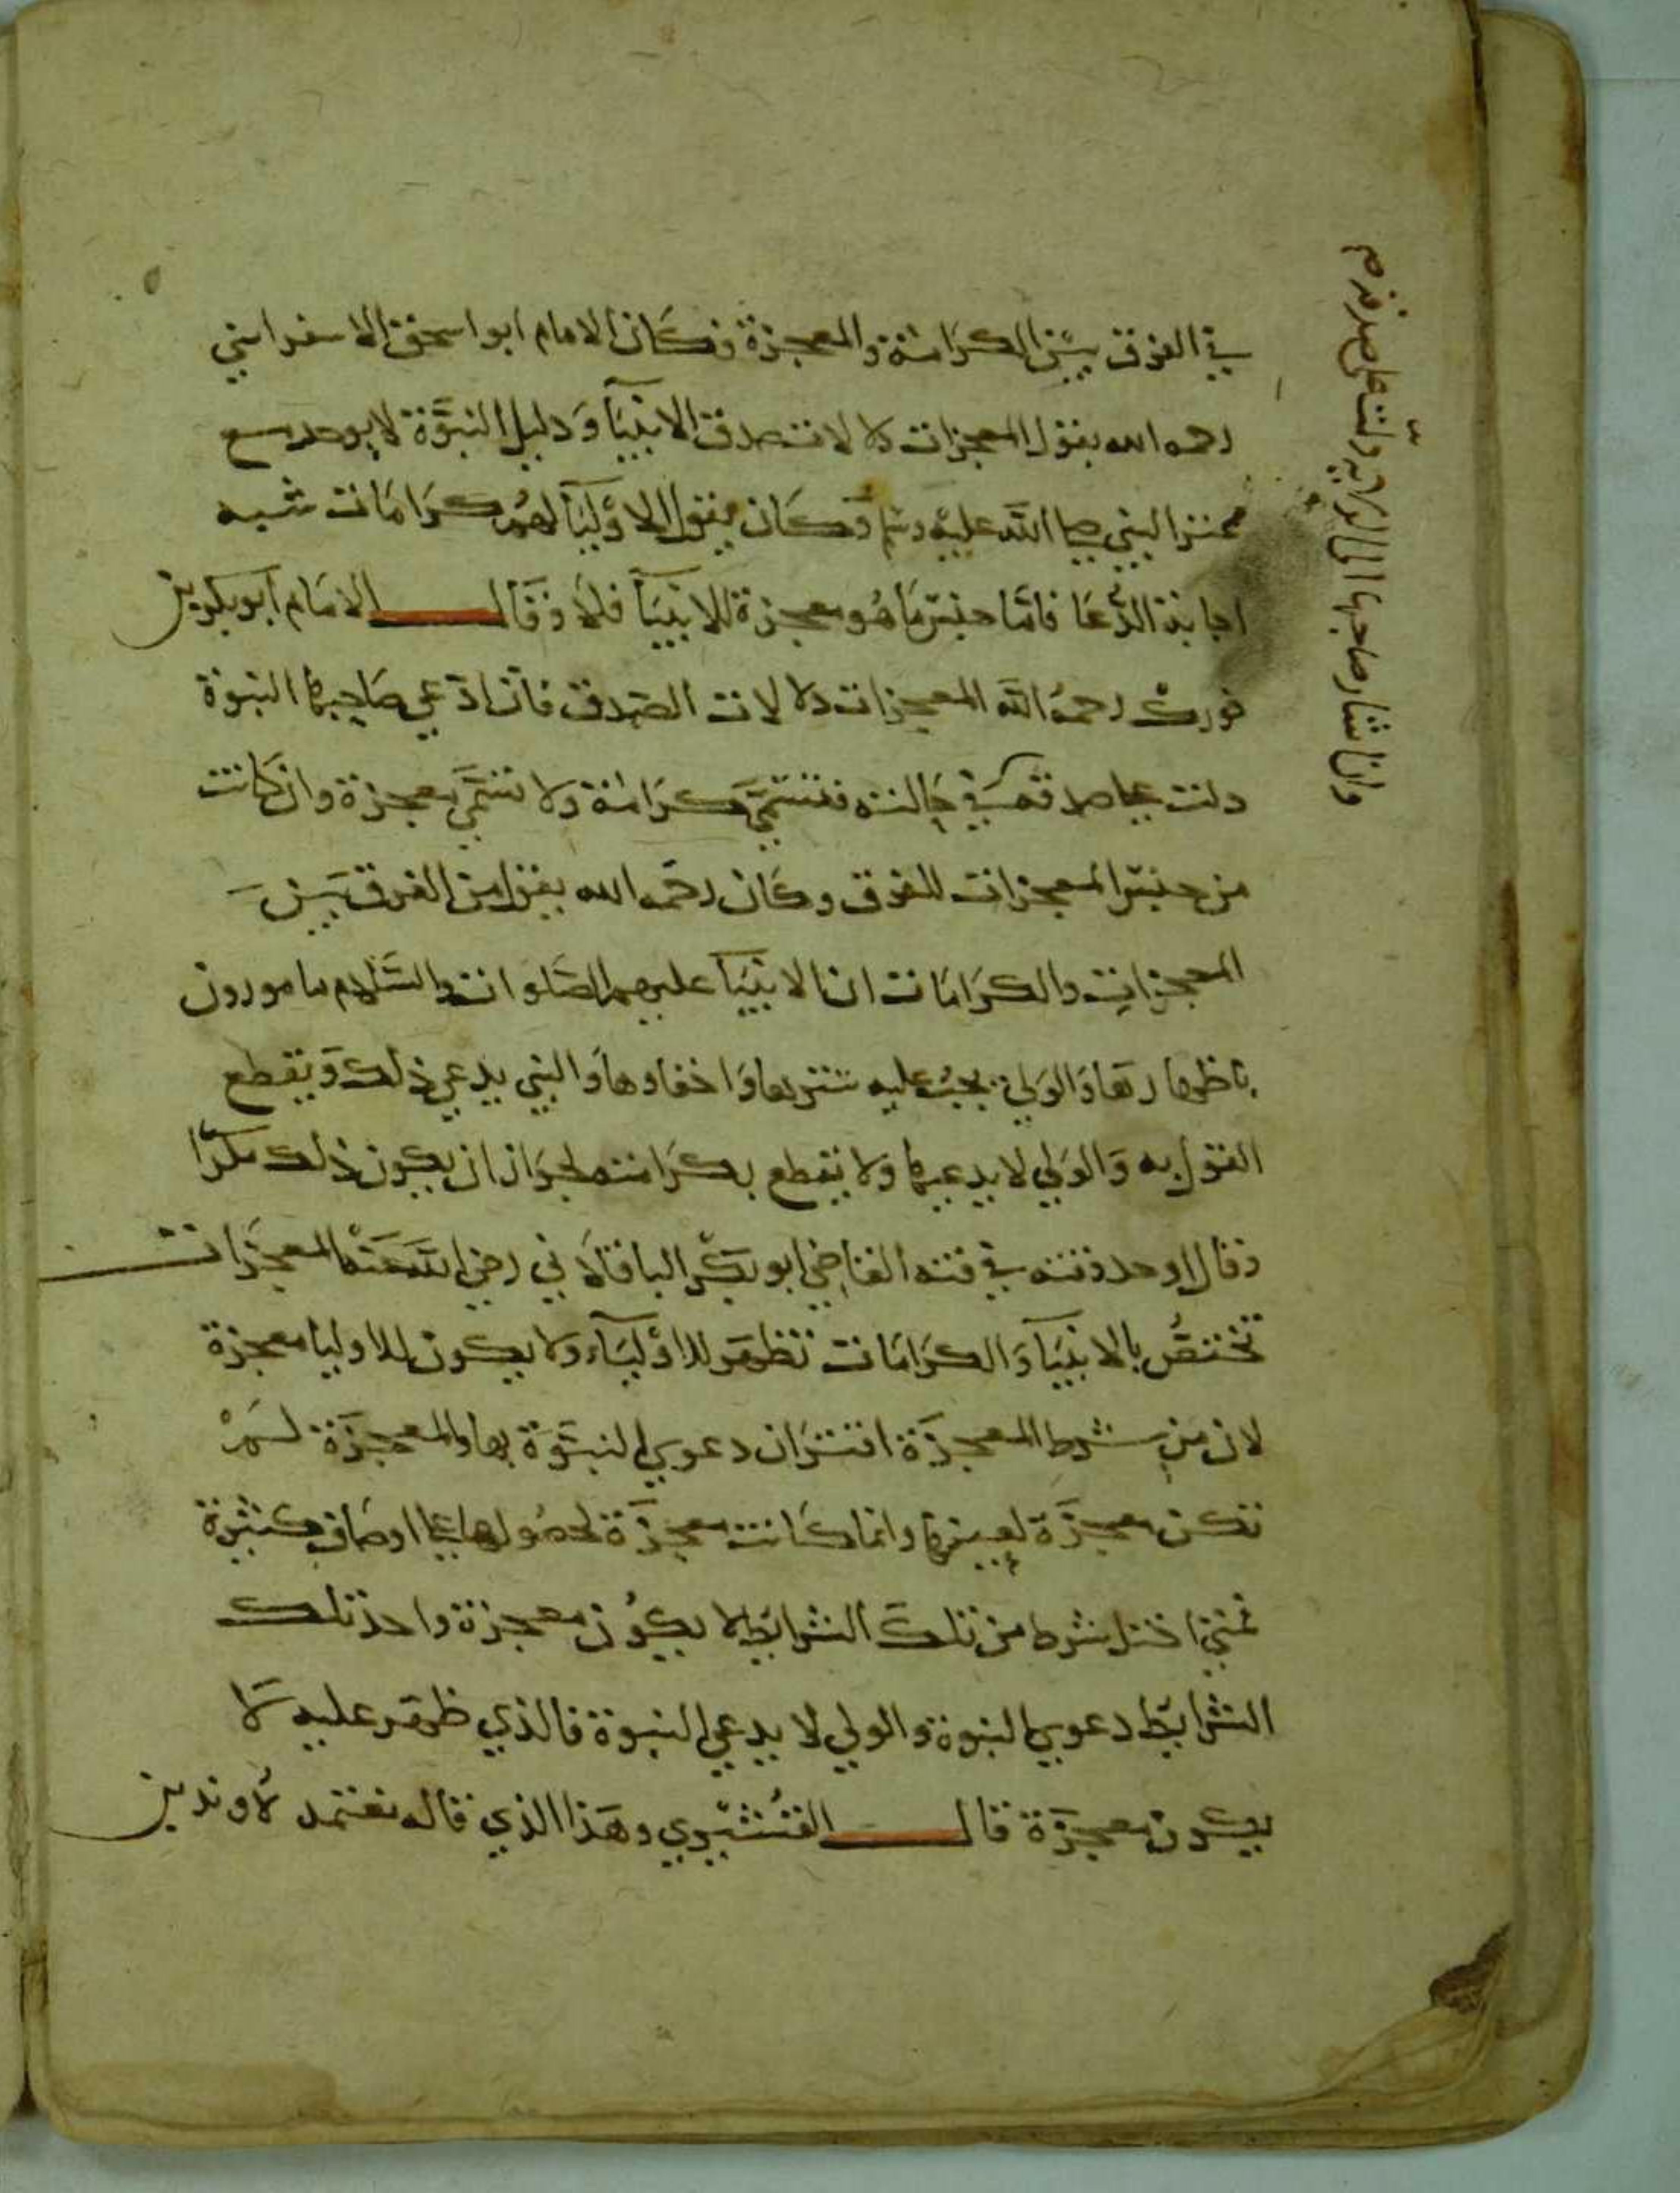 في الفرق بين الكرامة والمعجزة فكان الامام ابو اسحق الاسفرايني
رحمه الله يقول المعجزات دلالات صدق الانبيآ وَدليل النبوَّة لا يوجد مع
غير النبي صلى اللَّه عليه وسلم وَكان يقول الاوليآ لهُم كرَامَات شبه
اجابة الدُّعَا فامَّا جنسَ مَا هُو معجزة للانبيآ فلَا وَقَال الامَام ابو بكر بن
فورك رحمهُ اللَّه المعجزات دلالات الصِدق فان ادّعي صَاحِبها النبوة
دلت علي صدقه في حَالته فتسَمَّي كرَامة ولا تسَمَّي معجزة وان كانت
من جنس المعجزات للفرق وكان رحمَه الله يقول من الفرق بَين
المعجزاتِ والكرَامَات ان الانبيَآ عليهم الصَّلوات والسَّلام مامورون
باظهارهَا وَالوَلي يجبُ عليه سَترها وَاخفاوها وَالنبي يدعي ذلك وَيقطع
القول به وَالوَلي لا يدعيها ولا يقطع بكرَامته لجوَاز ان يكون ذلك مكرًا
وقال اوحد وقته في فنه القاضِي ابو بَكْر الباقلَاني رضي اللَّه عَنْه المعجزَات
تختصُّ بالانبيَآ وَالكرَامَات تظهَر للاوْليَآء ولا يكون للاوليا معجزة
لان مِن شرط المعجزَة اقترَان دعوي النبوَّة بها والمعجزَة لَمْ
تكن معجزَة لِعينها وانما كَانت معجزَة لحصُولها علي اوصَافٍ كثيرة
فمتي اختل شرط من تلكَ الشرايَط لا يكوُن معجزة واحد تلك
الشرايَط دعوي النبوة والولي لا يدعي النبوة فالذي ظهَر عليه لَا
يكون معجزَة قال القُشَيري وهَذا الذي قاله نعتمد لَاوندين
وان اشار صاحبها الى الولاية دلّت على صدقه م